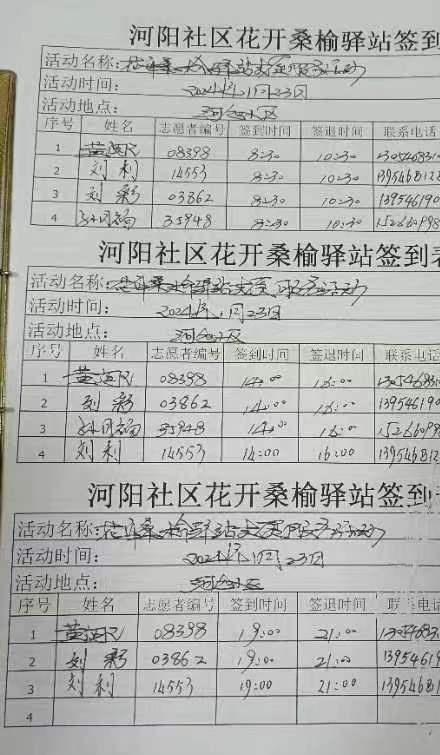 河阳社区花开桑榆驿站签到
活动名称:花开桑榆驿站志愿服务活动
活动时间: 2024年1月23日
活动地点: 河阳社区
序号 姓名 志愿者编号 签到时间 签退时间 联系电话
1 08398 8:30 10:30
2 刘利 14553 8:30 10:30 13954681
3 刘彩 03862 8:30 10:30 139546190
4 35948 8:30 10:30
河阳社区花开桑榆驿站签到表
活动名称:花开桑榆驿站志愿服务活动
活动时间: 2024年1月23日
活动地点: 河阳社区
序号 姓名 志愿者编号 签到时间 签退时间 联系电话
1 08398 14:00 16:00
2 刘彩 03862 14:00 16:00 139546190
3 35948 14:00 16:00
4 刘利 14553 14:00 16:00 13954681
河阳社区花开桑榆驿站签到
活动名称:花开桑榆驿站志愿服务活动
活动时间: 2024年1月23日
活动地点: 河阳社区
序号 姓名 志愿者编号 签到时间 签退时间 联系电话
1 08398 19:00 21:00
2 刘彩 03862 19:00 21:00 13954619
3 刘利 14553 19:00 21:00 13954681
4